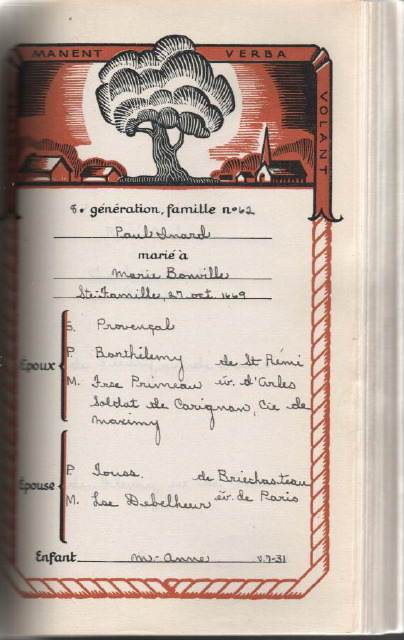 MANENT VERBA VOLANT
8e génération, famille no 62
Paul Inard
marié à
Marie Bonville
Ste-Famille, 27 oct. 1669
S. Provençal
Epoux
P. Barthélemy de St Rémi
M. Frse Primeau év. d'Arles
Soldat de Carignan, Cie de
Maximy
P. Touss. de Briechasteau
Epouse
M. Lse Debelheur év. de Paris
Enfant M-Anne V.7-31